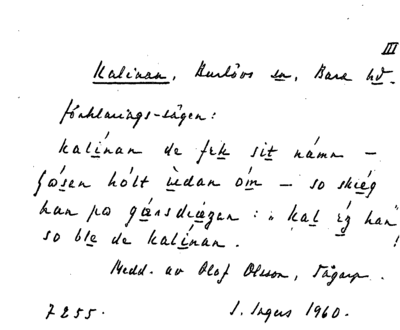 III
Kalinan, Burlövs sn, Bara hd.
förklarings-sägen:
kalínan de fek sit námn –
hólt ùedan óm – so
han pa gårsdiägen: "kal ég han"!
so ble de kalínan.
Medd. av Olof Olsson, Tågarp.
7255. I. Ingers 1960.